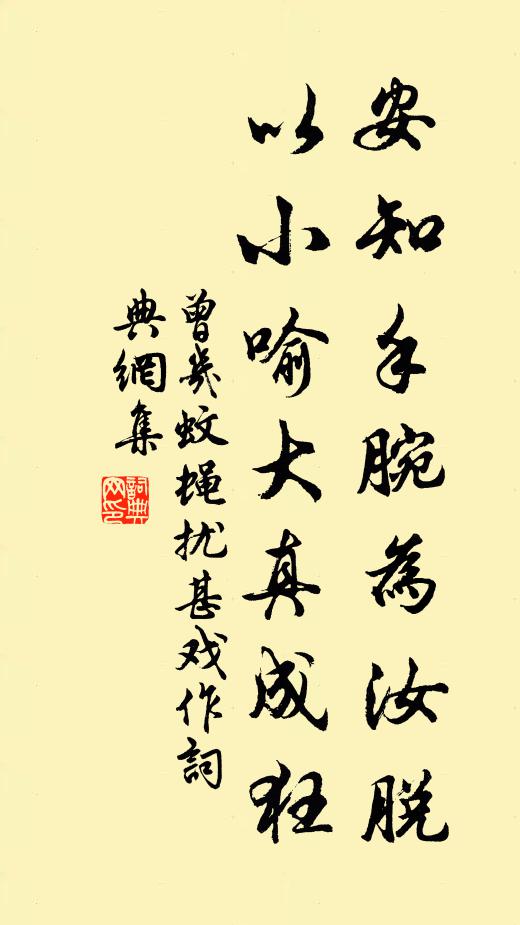 安知手腕為汝脱
以小喻大真成狂
曾幾蚊蝇扰甚戏作詞
典網集
詞典网印